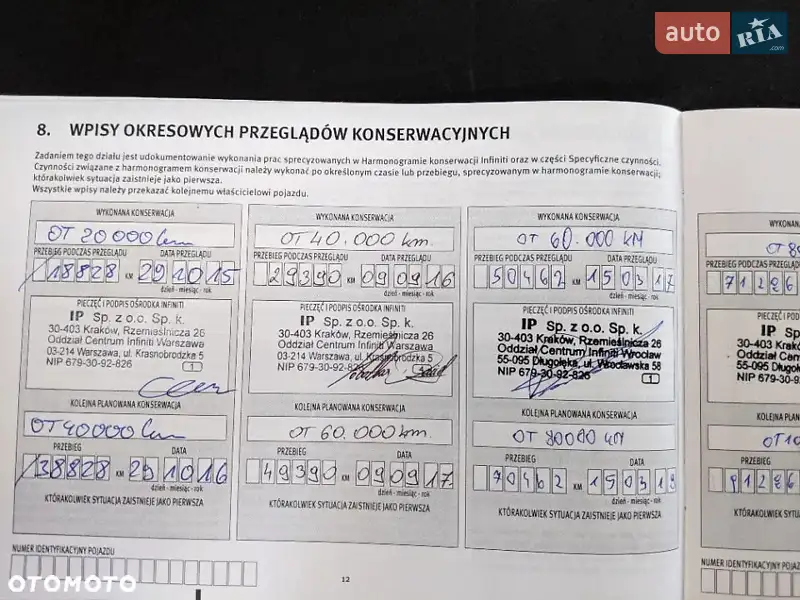 auto RIA .com
8. WPISY OKRESOWYCH PRZEGLĄDÓW KONSERWACYJNYCH
Zadaniem tego działu jest udokumentowanie wykonania prac sprecyzowanych w Harmonogramie konserwacji Infiniti oraz w części Specyficzne czynności.
Czynności związane z harmonogramem konserwacji należy wykonać po określonym czasie lub przebiegu, sprecyzowanym w harmonogramie konserwacji;
którakolwiek sytuacja zaistnieje jako pierwsza.
Wszystkie wpisy należy przekazać kolejnemu właścicielowi pojazdu.
WYKONANA KONSERWACJA
OT 20000 km
PRZEBIEG PODCZAS PRZEGLĄDU DATA PRZEGLĄDU
18828 KM 291015
dzień - miesiąc - rok
PIECZĘĆ I PODPIS OŚRODKA INFINITI
IP Sp. z o.o. Sp. k.
30-403 Kraków, Rzemieślnicza 26
Oddział Centrum Infiniti Warszawa
03-214 Warszawa, ul. Krasnobrodzka 5
NIP 679-30-92-826 1
KOLEJNA PLANOWANA KONSERWACJA
OT 40000 km
PRZEBIEG DATA
38828 KM 291016
dzień - miesiąc - rok
KTÓRAKOLWIEK SYTUACJA ZAISTNIEJE JAKO PIERWSZA
WYKONANA KONSERWACJA
OT 40.000 km.
PRZEBIEG PODCZAS PRZEGLĄDU DATA PRZEGLĄDU
29390 KM 090916
dzień - miesiąc - rok
PIECZĘĆ I PODPIS OŚRODKA INFINITI
IP Sp. z o.o. Sp. k.
30-403 Kraków, Rzemieślnicza 26
Oddział Centrum Infiniti Warszawa
03-214 Warszawa, ul. Krasnobrodzka 5
NIP 679-30-92-826
KOLEJNA PLANOWANA KONSERWACJA
OT 60.000km.
PRZEBIEG DATA
49390 KM 090917
dzień - miesiąc - rok
KTÓRAKOLWIEK SYTUACJA ZAISTNIEJE JAKO PIERWSZA
WYKONANA KONSERWACJA
OT 60.000 KM
PRZEBIEG PODCZAS PRZEGLĄDU DATA PRZEGLĄDU
50462 KM 150317
dzień - miesiąc - rok
PIECZĘĆ I PODPIS OŚRODKA INFINITI
IP Sp. z o.o. Sp. k.
30-403 Kraków, Rzemieślnicza 26
Oddział Centrum Infiniti Wrocław
55-095 Długołęka, ul. Wrocławska 58
NIP 679-30-92-826 1
KOLEJNA PLANOWANA KONSERWACJA
OT 80000 KM
PRZEBIEG DATA
70462 KM 150319
dzień - miesiąc - rok
KTÓRAKOLWIEK SYTUACJA ZAISTNIEJE JAKO PIERWSZA
WYKONAN
OT 8
PRZEBIEG PODCZAS PRZEGLĄDU
71286
PIECZĘĆ I POD
IP Sp.
30-403 Krakó
Oddział Cent
55-095 Długołęk
NIP 679-30-9
KOLEJNA PLAN
OT 10
PRZEBIEG
91286
KTÓRAKOLWIEK SYTU
NUMER IDENTYFIKACYJNY POJAZDU
NUMER IDENTYFIKACYJNY POJAZ
12
OTOMOTO